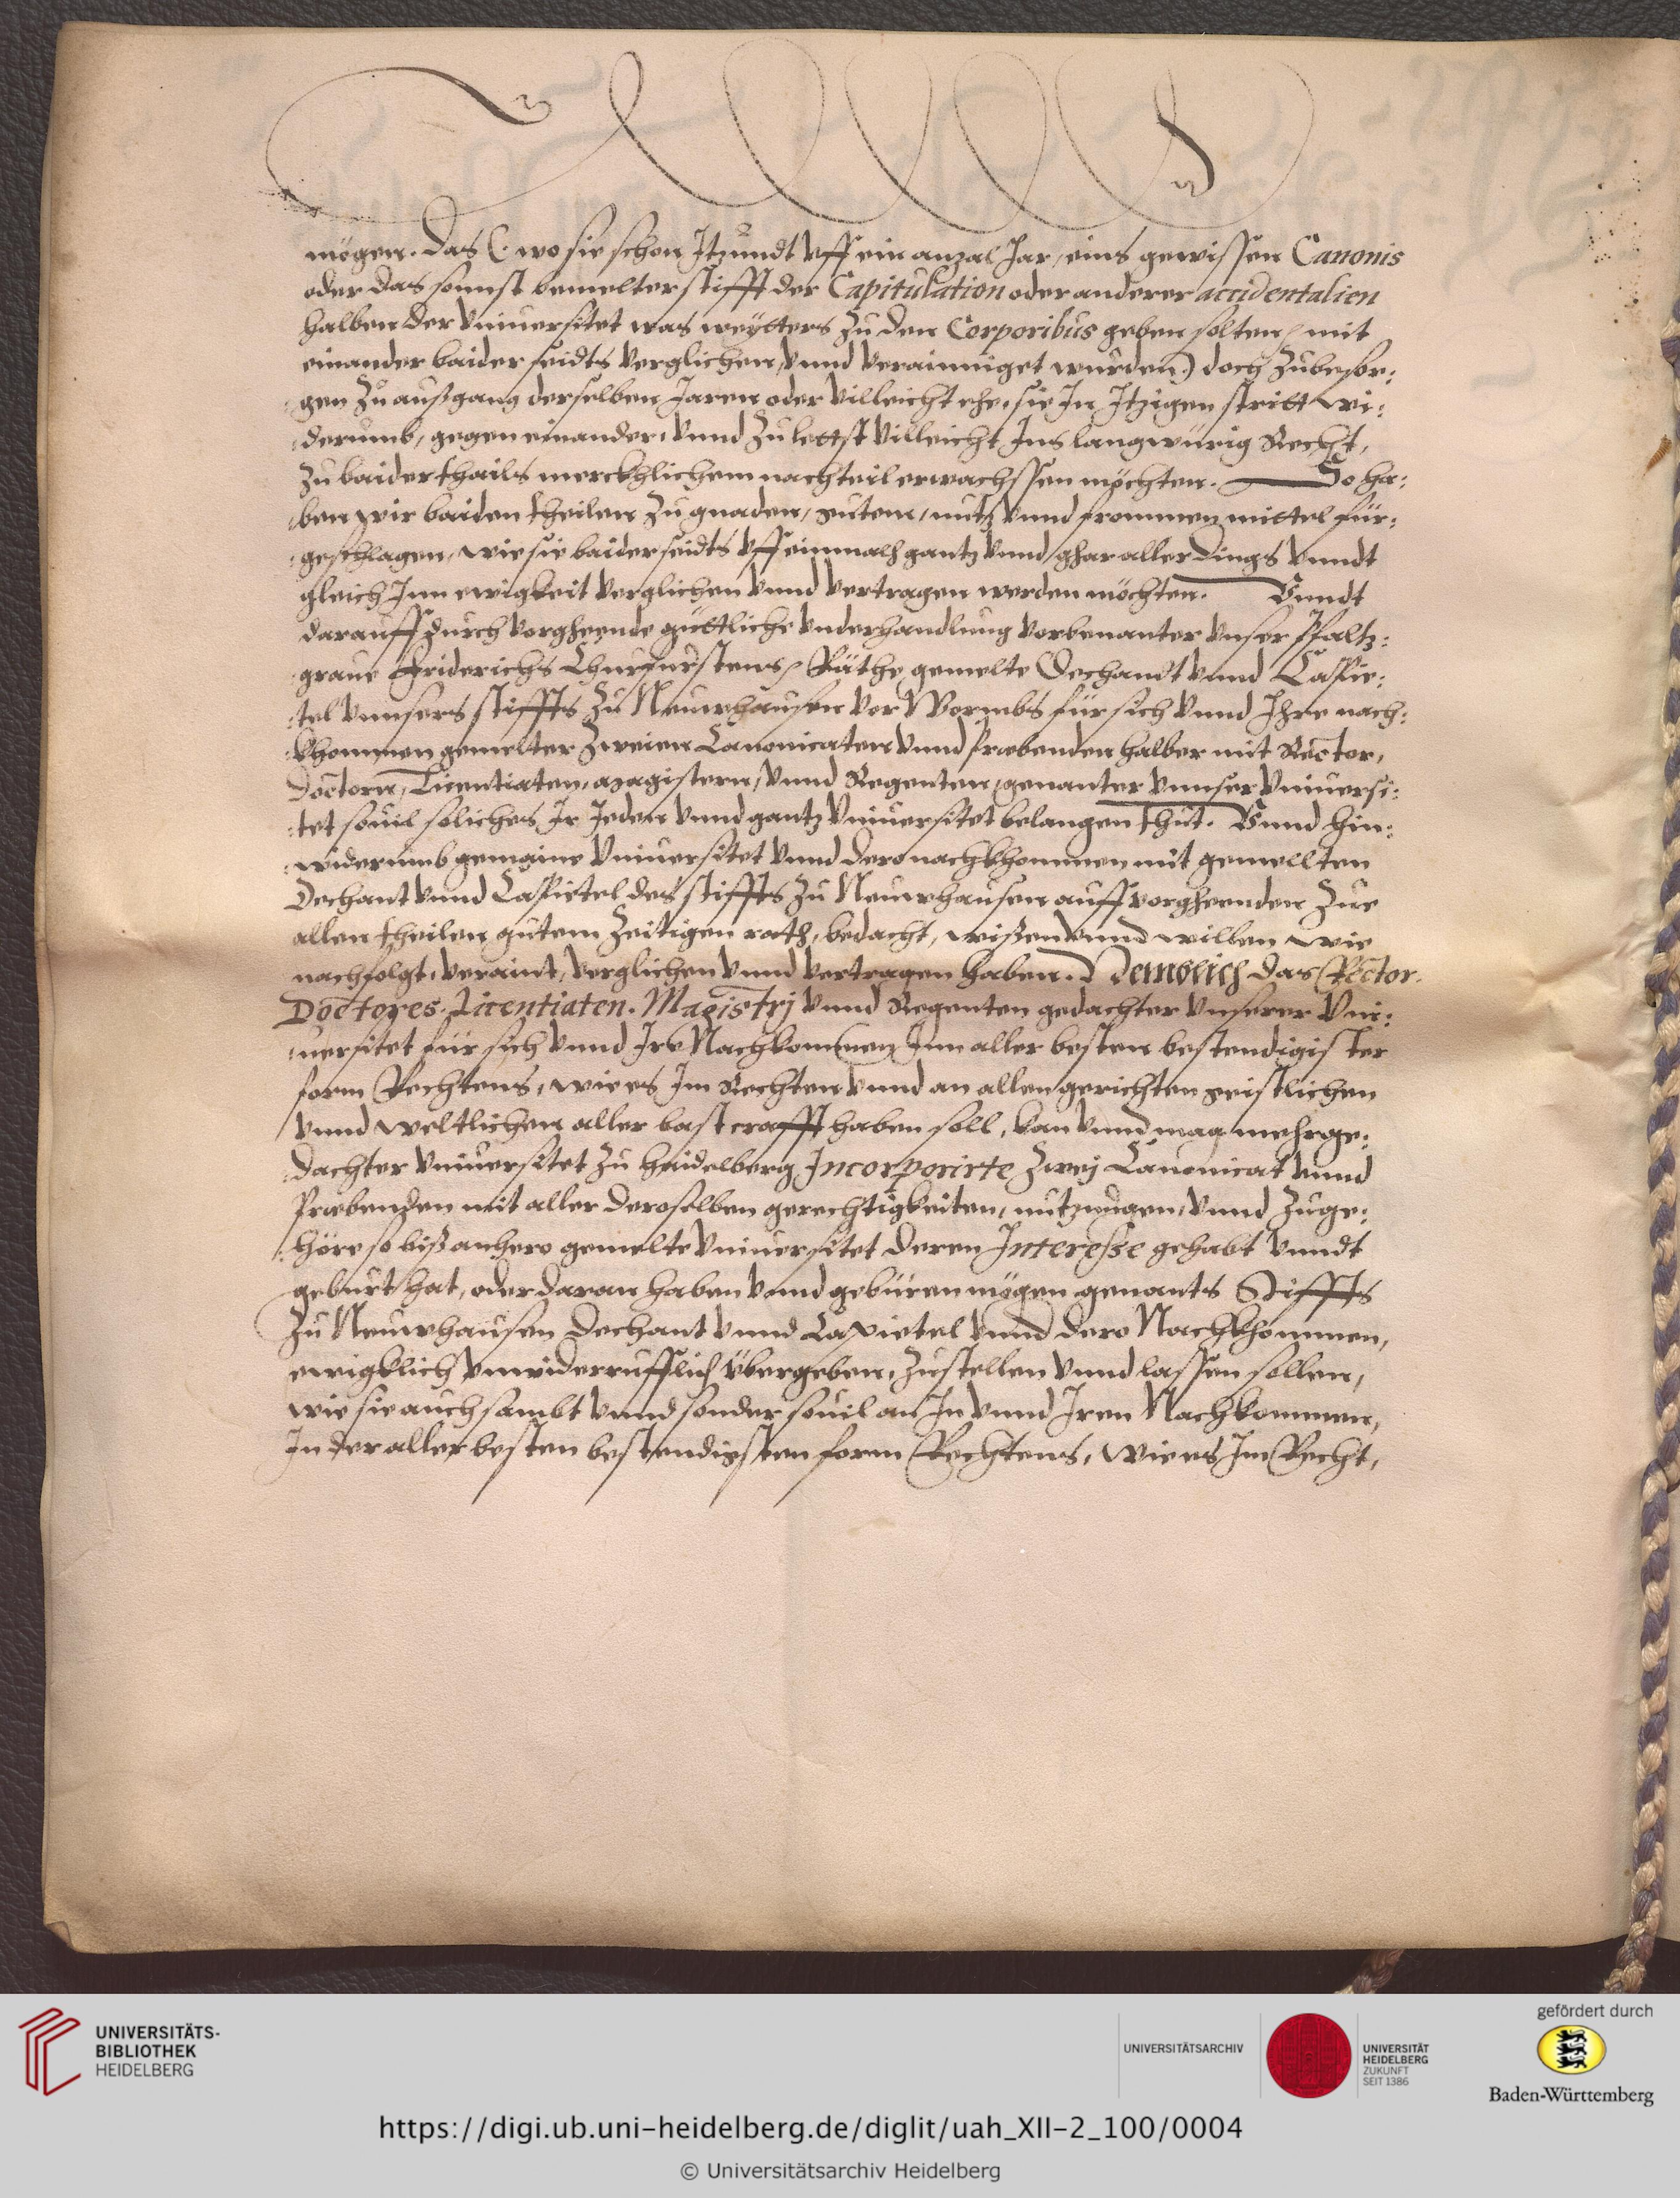 mögen. Das (: wo sie schon Itzundt vff ein anzal Jar, eins gewissen Canonis
oder das sonnst bemelter stifft der Capitulation oder anderer accidentalien
halben der Vniuersitet was weÿtters zu den Corporibus geben solten, mit
einander baiderseidts verglichen, vnnd verainniget wurden:) doch zubesor:
gen zu außgang derselben Jaren oder villeicht ehe, sie In Itzigen stritt wi:
derumb, gegen einander, vnnd zu lettst villeicht Ins langwürig Recht,
zu baider thails merckhlichem nachteil erwachssen möchten. So ha:
ben wir baiden theilen zu gnaden, gutem, nutz vnnd frommen mittel für:
geschlagen, wie sie baiderseidts vff einmalh gantz vnnd ghar aller dings vnndt
gleich Inn ewigkeit verglichen vnnd vertragen werden möchten. Vnndt
darauff durch vorgheende güttliche vnderhandlung vorbenanter vnser Pfaltz:
graue Friderichs Churfürstens, Räthe, gemelte Dechandt vnnd Cappie:
tel vnnsers stiffts zu Neuwhausen vor Wormbs für sich vnnd Ihre nach:
khommen gemelter zweien Canonicaten vnnd præbenden halber mit Rector,
Doctorn, Licentiaten, Magistern, vnnd Regenten, genanter vnnser Vniuersi:
tet souil soliches Ir Jeden vnnd gantz Vniuersitet belangen thut. Vnnd hin:
widerumb gemaine Vniuersitet vnnd dero nachkhommen mit gemellten
Dechant vnnd Cappietel des stiffts zu Neuwhausen auff vorgheenden zue
allen theilen gutem zeitigen rath, bedacht, wißen vnnd willen wie
nachfolgt, veraint, verglichen vnnd vertragen haben. Nemblich das Rector.
Doctores. Licentiaten. Magistrj vnnd Regenten gedachter vnserer Vni:
uersitet für sich vnnd Ire Nachkommen Inn aller besten bestendigister
form Rechtens, wie es Im Rechten vnnd an allen gerichten geistlichen
vnnd weltlichen aller bast crafft haben soll, kan vnnd mag mehrge:
dachter Vniuersitet zu Haidelberg Incorporirte zwej Canonicat vnnd
præbenden mit aller deroselben gerechtigkeiten, nutzungen, vnnd zuge:
höre so biß anhero gemelte Vniuersitet deren Interesse gehabt vnndt
geburt hat, oder daran haben vnnd gebüren mögen genants Stiffts
zu Neuwhausen Dechant vnnd Capietel vnnd dero Nachkhommen,
ewigklich vnwiderrufflich übergeben, zustellen vnnd lassen sollen,
wie sie auch sambt vnnd sonder souil an In vnnd Iren Nachkommen,
In der aller besten bestendigsten form Rechtens, wie es Im Recht,
UNIVERSITÄTS-
BIBLIOTHEK
HEIDELBERG
UNIVERSITÄTSARCHIV
UNIVERSITÄT
HEIDELBERG
ZUKUNFT
SEIT 1386
gefördert durch
Baden-Württemberg
https://digi.ub.uni-heidelberg.de/diglit/uah_XII-2_100/0004
© Universitätsarchiv Heidelberg